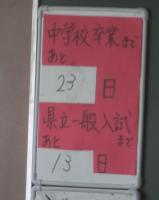 中学校卒業まで
あと
23
日
県立一般入試
あと まで
13 日